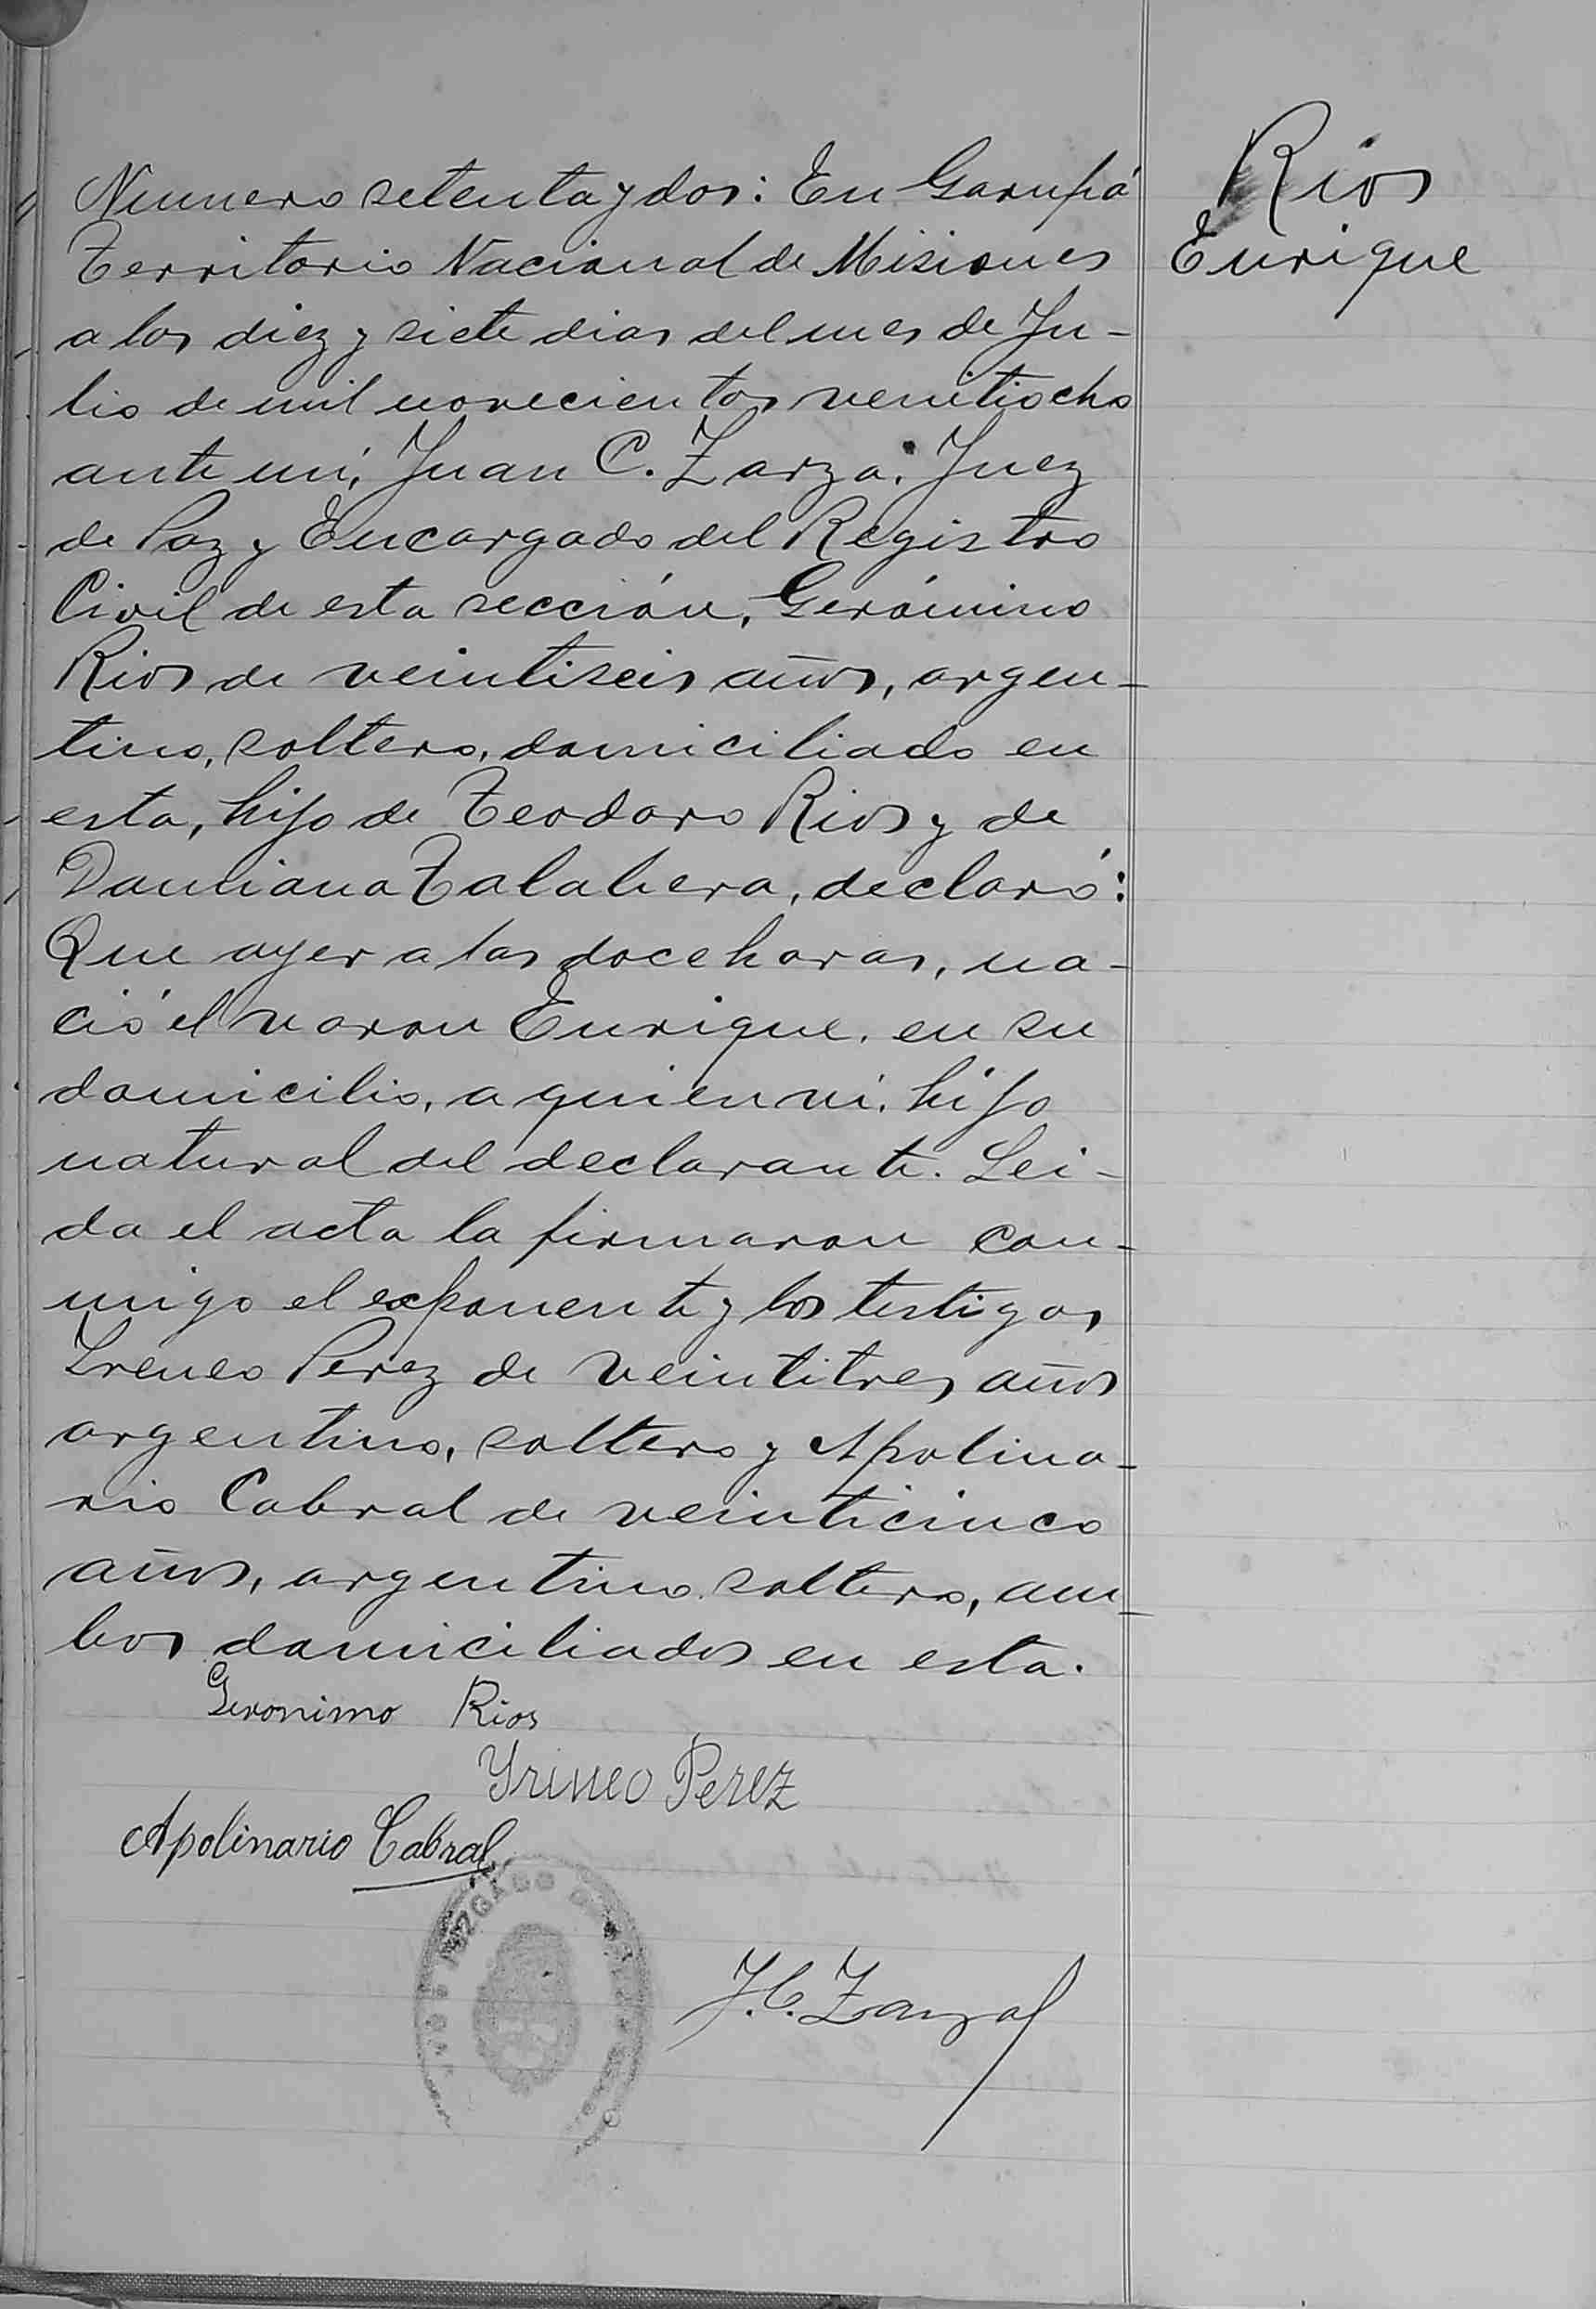 Numero setenta y dos: En Garupá
Territorio Nacional de Misiones
a los diez y siete dias del mes de Ju-
lio de mil novecientos venitiocho
ante mí, Juan C. Zarza, Juez
de Paz y Encargado del Registro
Civil de esta sección, Gerónimo
Rios de veintiseis años, argen-
tino, soltero, domiciliado en
esta, hijo de Teodoro Rios y de
Damiana Talabera, declaró:
Que ayer a las doce horas, na-
ció el varon Enrique, en su
domicilio, a quien ví, hijo
natural del declarante. Lei-
da el acta la firmaron con-
migo el exponente y los testigos
Ireneo Perez de veintitres años
argentino, soltero y Apolina-
rio Cabral de veinticinco
años, argentino soltero, am-
bos domiciliados en esta.
Geronimo Rios
Yrineo Perez
Apolinario Cabral
JUZGADO
J. C. Zarza
Rios
Enrique